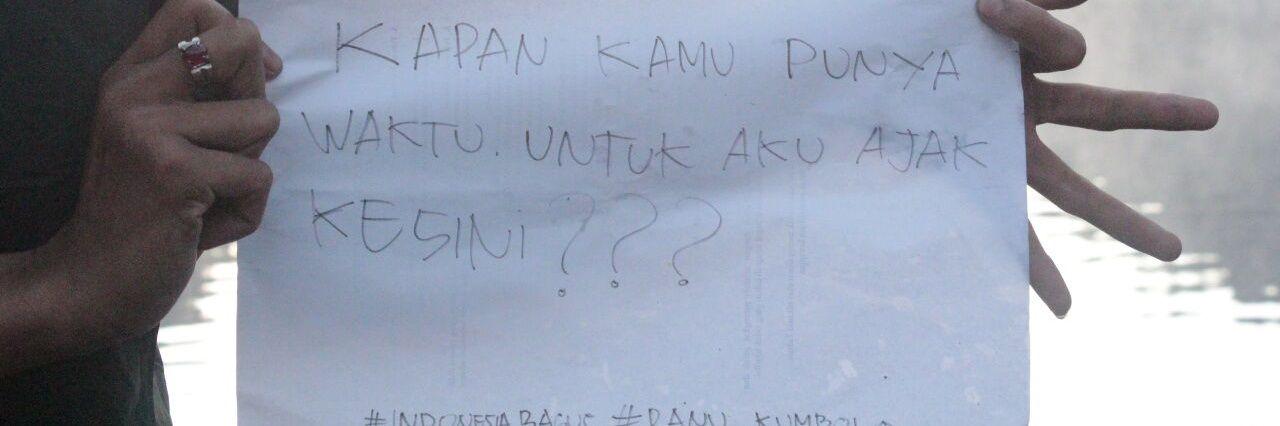 KAPAN KAMU PUNYA
WAKTU. UNTUK AKU AJAK
KESINi???
#INDONESIA BAGUS #RANU KUMBOLO